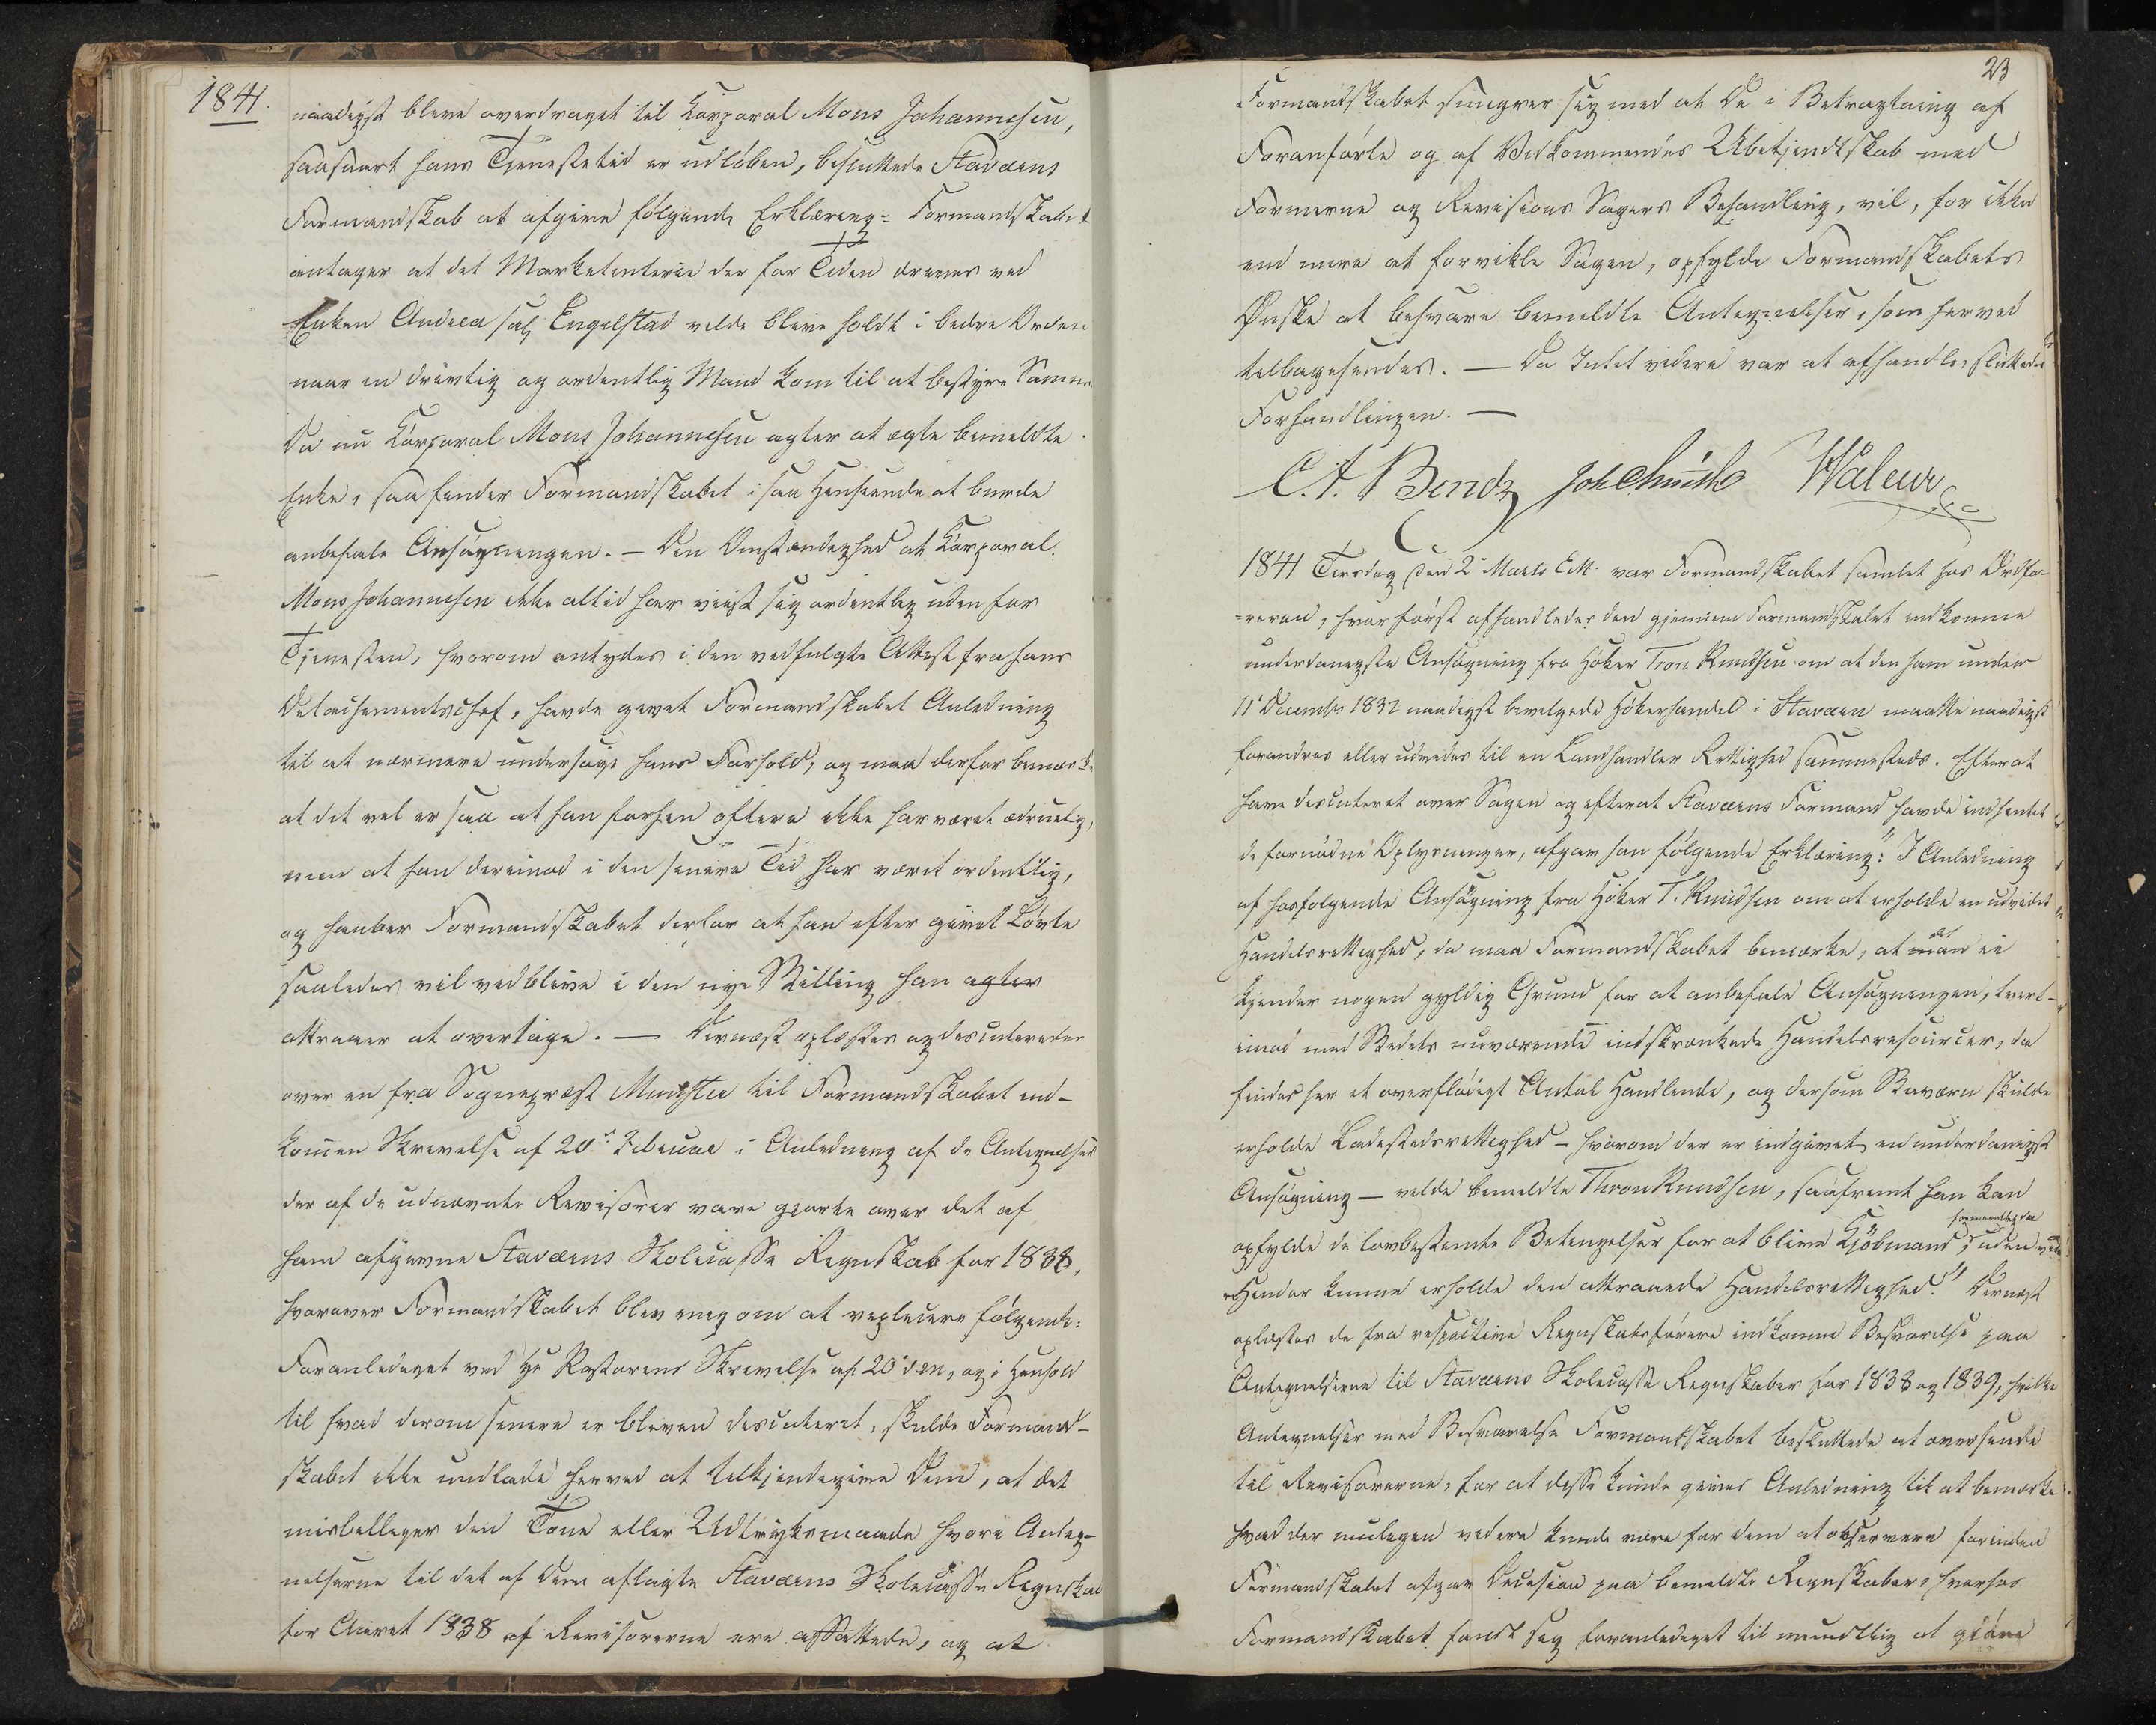 1841.
naadigst bleve overdraget til Korporal Mons Johannesen,
saasnart hans Tjenestetid er udløben, besluttede Staværns
Formandskab at afgive følgende Erklæring: Formandskabet
antager at det Marketenterie der for Tiden drives ved
Enken Andrea sal Engelstad vilde blive holdt i bedre Orden
naar en driwtig og ordentlig Mand kom til at bestyre Samme
Da nu Korporal Mons Johannesen agter at ægte bemeldte
Enke, saa finder Formandskabet i saa Henseende at burde
anbefale Ansøgningen. — Den Omstændighed at Korporal
Mons Johannesen ikke altid har viist sig ordentlig uden for
Tjenesten, hvorom antydes i den vedfulgte Attest fra hans
Detachementschef, havde gevet Formandskabet Anledning
til at nærmere undersøge hans Forhold, og maa derfor bemærke
at det vel er saa at han forhen oftere ikke har været ædruelig,
men at han derimod i den senere Tid har været ordentlig,
og haaber Formandskabet derfor at han efter givet Løvte
saaledes vil vedblive i den nye Stilling han agter
attraaer at overtage. — Dernæst oplæstes og descuteredes
over en fra Sognepræst Münster til Formandskabet ind-
kommen Skrevelse af 20de Februar i Anledning af de Antegnelser
der af de udnævnte Revisorer vare gjorte over det af
ham afgevne Staværns Skolecasse Regnskab for 1838,
hvorover Formandskabet blev enig om at replicere følgende:
Foranlediget ved Hr Pastorens Skrevelse af 20de dM, og i Henhold
til hvad derom senere er bleven descuteret, skulde Formand-
skabet ikke undlade herved at tilkjendegive Dem, at det
misbelleger den Tone eller Udtryksmaade hvori Anteg-
nelserne til det af Dem aflagte Staværns Skolecasse Regnskab
for Aaret 1838 af Revisorerne ere affattede, og at
23
Formandskabet smigrer sig med at De i Betragtning af
Foranførte og af Vedkommendes Ubekjendtskab med
Formerne og Revisions Sagers Behandling, vil, for ikke
end mere at forvikle Sagen, opfylde Formandskabets
Ønske at besvare bemeldte Antegnelser, som herved
telbagesendes. — Da Intet videre var at afhandle, sluttedes
Forhandlingen. —
C. A. Bendz Waleur
1841 Tirsdag den 2de Marts EM. var Formandskabet samlet hos Ordfø-
=reren, hvor først afhandledes den gjennem Formandskabet indkomne
underdanigste Ansøgning fra Høker Tron Knudsen om at den ham under
11te December 1837 naadigst bevilgede Høkerhandel i Staværn maatte naadigst
forandres eller udvides til en Landhandler Rettighed sammesteds. Efterat
have descuteret over Sagen og efterat Staværns Formand havde indhentet
de fornødne Oplysninger, afgav han følgende Erklæring: "I Anledning
af hosfølgende Ansøgning fra Høker T. Knudsen om at erholde en udvidet
Handelsrettighed, da maa Formandskabet bemærke, at man det ei
kjender nogen gyldig Grund for at anbefale Ansøgningen, tvert-
imod med Stedets nuværende indskrænkede Handelsresourcer, da
findes her et overflødigt Antal Handlende, og dersom Stavern skulde
erholde Ladestedsrettighed — hvorom der er indgivet en underdanigst
Ansøgning — vilde bemeldte Thron Knudsen, saafremt han kan
opfylde de lovbestemte Betingelser for at blive Kjøbmand, formentlig da uden
Hinder kunne erholde den attraaede Handelsrettighed." Dernæst
oplæstes de fra respective Regnskabsførere indkomne Besvarelse paa
Antegnelserne til Staværns Skolecasse Regnskaber for 1838 og 1839, hvilke
Antegnelser med Besvarelse Formandskabet besluttede at oversende
til Revisorerne, for at disse kunde gives Anledning til at bemærke
hvad der muligen videre kunde være for dem at observere forinden
Formandskabet afgav Decision paa bemeldte Regnskaber, hvorhos
Formandskabet fandt sig foranlediget til mundtlig at gjøre